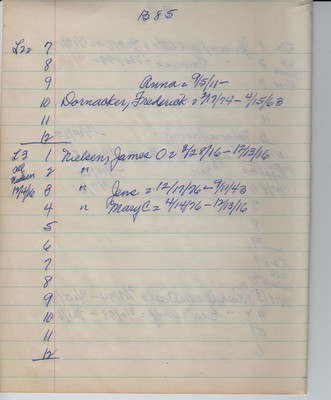 B 85
L22 7
8
9 Anna = 9/5/11-
10 Dornacker, Frederick = 7/17/74 - 4/15/63
11
12
L3 1 Nielsen, James O = 8/28/16 - 17/13/16
2 "
Nielsen
17/4/16 3 " Jens = 12/17/76 - 9/11/43
4 " Mary C = 4/14/76 - 17/13/16
5
6
7
8
9
10
11
12